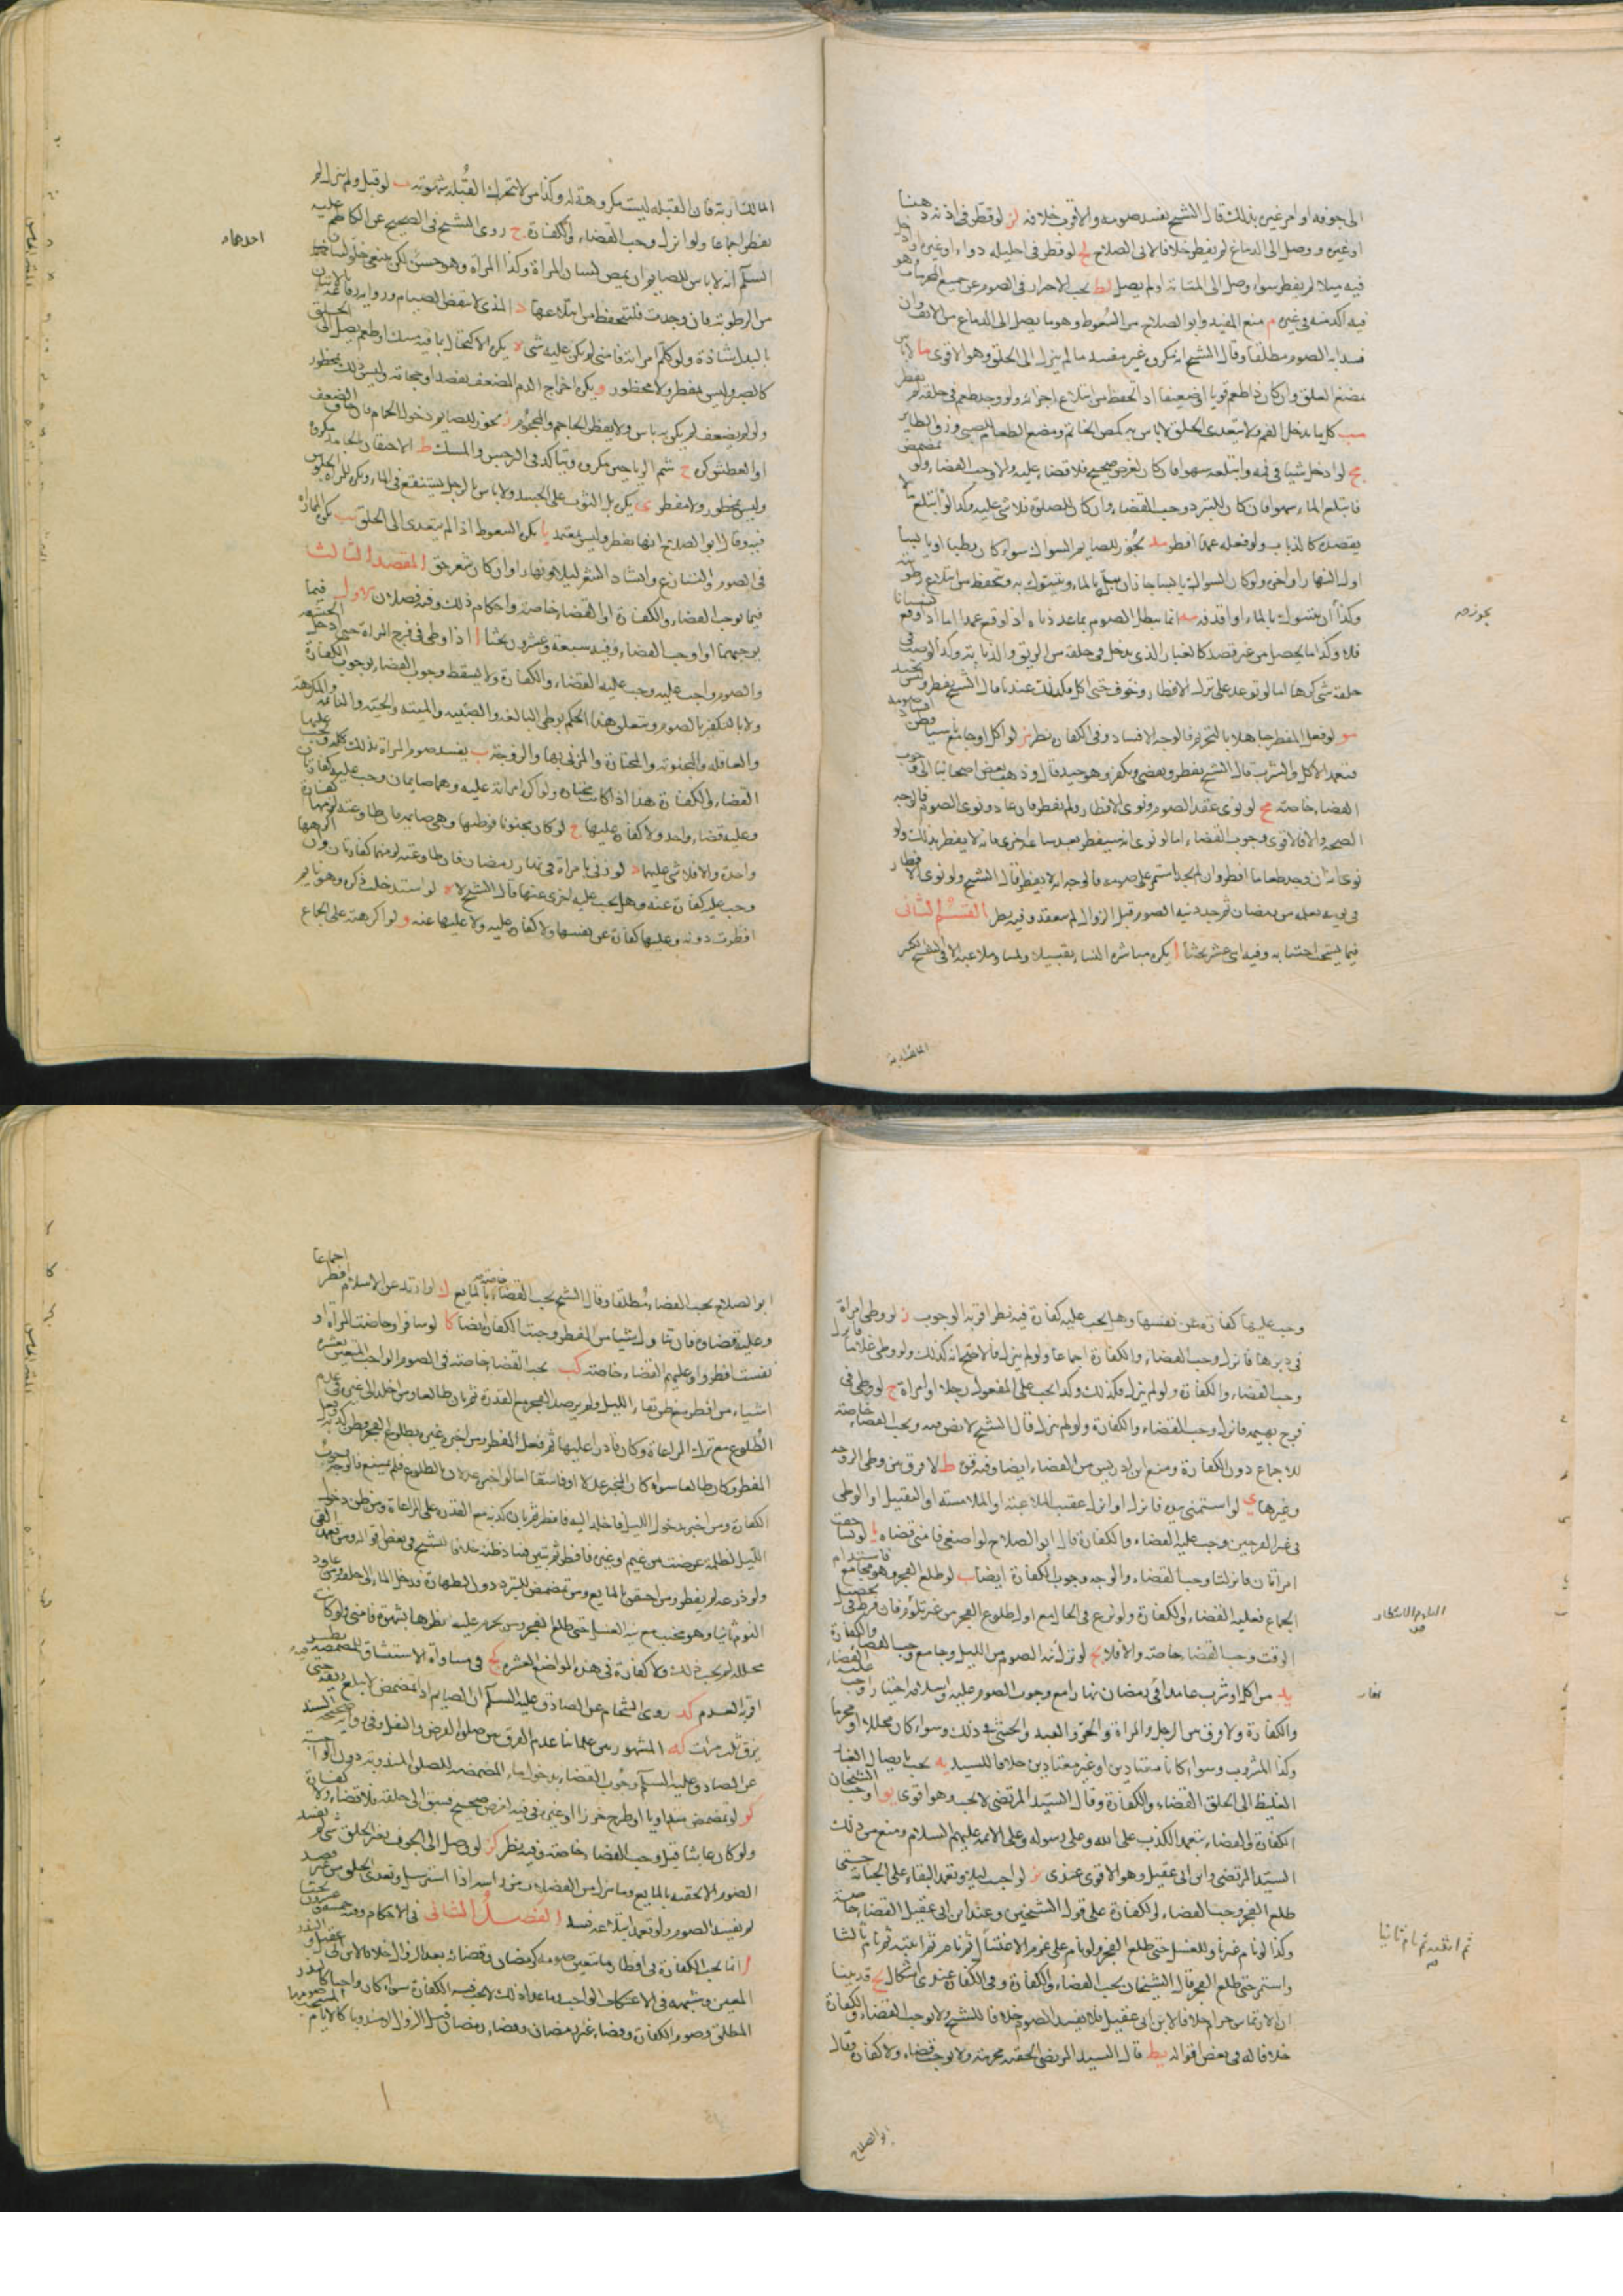 الى جوفه او امر غيره بذلك قال الشيخ يفسد صومه والاقرب خلافه لز لو قطر في اذنه دهنا
او غيره ووصل الى الدماغ لم يفطر خلافا لابى الصلاح لح لو قطر في احليله دواء او غيره او ادخل
فيه ميلا لم يفطر سواء وصل الى المثانة او لم يصل لط يجب الاحتراز في الصوم عن جميع المحرمات وهو
فيه اكد منه في غيره م منع المفيد وابو الصلاح من السعوط وهو ما يصل الى الدماغ من الانف وان
فسد به الصوم مطلقا وقال الشيخ انه مكروه غير مفسد ما لم ينزل الى الحلق وهو الاقوى ما لا باس
بمضغ العلك وان كان ذا طعم قويا او ضعيفا اذا تحفظ من ابتلاع اجزائه ولو وجد طعمه في حلقه لم يفطر
مب كل ما يدخل الفم ولا يتعدى الحلق لا باس به كمص الخاتم ومضغ الطعام للصبى وزق الطائر
مج لو ادخل شيئا في فمه وابتلعه سهوا فان كان لغرض صحيح فلا قضاء عليه والا وجب القضاء ولو تمضمض
فابتلع الماء سهوا فان كان للتبرد وجب القضاء وان كان للصلوة فلا شئ عليه وكذا لو ابتلع ما لا
يقصده كالذباب ولو فعله عمدا افطر مد يجوز للصايم السواك سواء كان رطبا او يابسا
اول النهار او اخره ولو كان السواك يابسا جاز ان يبله بالماء ويتسوك به ويتحفظ من ابتلاع رطوبته
وكذا ان يتسوك بالماء او يقذفه مه انما يبطل الصوم بما عددناه اذا وقع عمدا اما اذا وقع نسيانا
فلا وكذا ما يحصل من غير قصد كالغبار الذى يدخل في حلقه من الريق والذبابة وكذا لو صب في
حلقه شئ كرها اما لو توعد على ترك الافطار وخوف حتى اكل فكذلك عندنا وقال الشيخ يفطر
مو لو فعل المفطر جاهلا بالتحريم فالوجه الافساد وفي الكفارة نظر مز لو اكل او جامع ناسيا فظن فساد صومه
فتعمد الاكل والشرب قال الشيخ يفطر ويقضى ويكفر وهو جيد قال وذهب بعض اصحابنا الى وجوب
القضاء خاصة مح لو نوى عقد الصوم ونوى الافطار ولم يفطر فان عاد ونوى الصوم فالوجه
الصحة والا فالاقوى وجوب القضاء اما لو نوى انه سيفطر بعد ساعة اخرى فانه لا يفطر بذلك ولو
نوى انه ان وجد طعاما افطر وان لم يجد استمر على صومه فالوجه انه لا يفطر قال الشيخ ولو نوى الافطار
في يوم يعلمه من رمضان ثم جدد نية الصوم قبل الزوال لم ينعقد وفيه نظر القسم الثانى
فيما يستحب اجتنابه وفيه اى عشر بحثا ا يكره مباشرة النساء تقبيلا ولمسا وملاعبة الا في الشيخ الكبير
يجوز صح
المالك اربه فان القبله ليست مكروهة له وكذا من لا تحرك القبله شهوته ب لو قبل ولم ينزل لم
يفطر اجماعا ولو انزل وجب القضاء والكفارة ج روى الشيخ في الصحيح عن الكاظم عليه
السلم انه لا باس للصايم ان يمص لسان المراة وكذا المراة وهو حسن لكن ينبغى خلو لسانهما
من الرطوبة فان وجدت فلتحفظ من ابتلاعها د المذى لا ينقض الصيام ورواية رفاعة
بالبدل شاذة ولو كلم امراته فامنى لم يكن عليه شئ ه يكره الاكتحال بما فيه مسك او طعم يصل الى الحلق
كالصبر وليس بمفطر ولا محظور و يكره اخراج الدم المضعف بفصد او حجامة وليس ذلك بمحظور
ولو لم يضعف لم يكن به باس ولا يفطر الحاجم والمحجوم ز يجوز للصايم دخول الحمام فان خاف الضعف
او العطش كره ح شم الرياحين مكروه ويتاكد في النرجس والمسك ط الاحتقان بالجامد مكروه
وليس بمحظور ولا مفطر ى يكره بل الثوب على الجسد ولا باس بالرجل يستنقع في الماء ويكره للمراة الجلوس
فيه وقال ابو الصلاح انها تفطر وليس بمعتمد يا يكره السعوط اذا لم يتعدى الى الحلق يب يكره المماراة
في الصوم والتنازع وانشاد الشعر ليلا ونهارا وان كان شعر حق المقصد الثالث
فيما يوجب القضاء والكفارة او القضاء خاصة واحكام ذلك وفيه فصلان الاول فيما
يوجبهما او يوجب القضاء وفيه سبعة وعشرون بحثا ا اذا وطى في فرج المراة حتى ادخل الحشفه
والصوم واجب عليه وجب عليه القضاء والكفارة ولا يسقط وجوب القضاء بوجوب الكفارة
ولا بالتكفير بالصوم ويتعلق هذا الحكم بوطى البالغه والصغيره والميته والحيه والنائمه والمكرهة
والعاقله والمجنونه والمختارة والمزنى بها والزوجة ب يفسد صوم المراة بذلك كله ويجب عليها
القضاء والكفارة هذا اذا كانت مختارة ولو اكره امراته عليه وهما صايمان وجب عليه كفارتان
وعليه قضاء واحد ولا كفارة عليها ج لو كان مجنونا فوطئها وهى صايمه فان طاوعته لزمها كفارة
واحدة والا فلا شئ عليها د لو زنى بامراة في نهار رمضان فان طاوعته لزمتهما كفارتان وان اكرهها
وجب عليه كفارة عنه وهل يجب عليه اخرى عنها قال الشيخ لا ه لو استدخلت ذكره وهو نايم
افطرت دونه وعليها كفارة عن نفسها ولا كفارة عليه ولا عليها عنه و لو اكرهته على الجماع
احدهما
المالك اربه
وجب عليها كفارة عن نفسها وهل يجب عليه كفارة فيه نظر اقربه الوجوب ز لو وطى امراة
في دبرها فانزل وجب القضاء والكفارة اجماعا ولو لم ينزل فالاصح انه كذلك ولو وطى غلاما فانزل
وجب القضاء والكفارة ولو لم ينزل فكذلك وكذا يجب على المفعول رجلا او امراة ح لو وطى في
فرج بهيمة فانزل وجب القضاء والكفارة ولو لم ينزل قال الشيخ لا نص فيه ويجب القضاء خاصة
للاجماع دون الكفارة ومنع ابن ادريس من القضاء ايضا وفيه قوة ط لا فرق بين وطى الزوجة
وغيرها ى لو استمنى بيده فانزل او انزل عقيب الملاعبة او الملامسة او التقبيل او الوطى
في غير الفرجين وجب عليه القضاء والكفارة قال ابو الصلاح لو اصغى فامنى قضاه يا لو تساحقت
امراتان فانزلتا وجب القضاء والوجه وجوب الكفارة ايضا يب لو طلع الفجر وهو مجامع فاستدام
الجماع فعليه القضاء والكفارة ولو نزع في الحال مع اول طلوع الفجر من غير تلوم فان فرط في تحصيل
الوقت وجب القضاء خاصة والا فلا يج لو ترك نية الصوم من الليل وجامع وجب القضاء والكفارة
يد من اكل او شرب عامدا في رمضان نهارا مع وجوب الصوم عليه واسلامه اختيارا وجب عليه القضاء
والكفارة ولا فرق بين الرجل والمراة والحر والعبد والخنثى في ذلك وسواء كان محللا او محرما
وكذا المشروب وسواء كانا معتادين او غير معتادين خلافا للسيد يه يجب بايصال الغبار
الغليظ الى الحلق القضاء والكفارة وقال السيد المرتضى لا يجب وهو اقوى يو اوجب الشيخان
الكفارة والقضاء بتعمد الكذب على الله وعلى رسوله وعلى الائمة عليهم السلام ومنع من ذلك
السيد المرتضى وابن ابى عقيل وهو الاقوى عندى يز لو اجنب ليلا وتعمد البقاء على الجنابة حتى
طلع الفجر وجب القضاء والكفارة على قول الشيخين وعند ابن ابى عقيل القضاء خاصة
وكذا لو نام غير ناو للغسل حتى طلع الفجر ولو نام على عزم الاغتسال ثم نام ثم انتبه ثم نام ثالثا
واستمر حتى طلع الفجر قال الشيخان يجب القضاء والكفارة وفي الكفارة عندى اشكال يح قد بينا
ان الارتماس حرام خلافا لابن ابى عقيل فلا يفسد الصوم خلافا للشيخ ولا يوجب القضاء والكفارة
خلافا له في بعض اقواله يط قال السيد المرتضى الحقنه محرمة ولا يوجب قضاء ولا كفارة وقال
نهار
ثم انتبه ثم نام ثانيا صح
ابو الصلاح
ابو الصلاح يجب القضاء مطلقا وقال الشيخ يجب القضاء خاصة بالمايع ك لو ارتد عن الاسلام افطر اجماعا
وعليه قضاؤه فان تناول شيئا من المفطر وجبت الكفارة ايضا كا لو سافر او حاضت المراة او
نفست افطروا وعليهم القضاء خاصة كب يجب القضاء خاصة في الصوم الواجب المتعين بعشره
اشياء من افطر مع ظن بقاء الليل ولم يرصد الفجر مع القدرة ثم بان طالعا ومن اخلد الى غيره في عدم
الطلوع مع ترك المراعاة وكان قادرا عليها ثم فعل المفطر ومن اخبره غيره بطلوع الفجر وظن كذبه ففعل
المفطر وكان طالعا سواء كان المخبر عدلا او فاسقا اما لو اخبر عدلان بالطلوع فلم يمتنع فالوجه وجوب
الكفارة ومن اخبر بدخول الليل فاخلد اليه فافطر ثم بان كذبه مع القدرة على المراعاة ومن ظن دخول
الليل لظلمة عرضت من غيم او غيره فافطر ثم تبين فساد ظنه خلافا للشيخ في بعض اقواله ومن تعمد القئ
ولو ذرعه لم يفطر ومن احتقن بالمايع ومن تمضمض للتبرد دون الطهارة فدخل الماء الى حلقه ومن عاود
النوم ثانيا وهو مجنب مع نية الغسل حتى طلع الفجر ومن يحرم عليه نظرها بشهوة فامنى ولو كانت
محلله لم يجب ذلك ولا كفارة في هذه المواضع العشره كج في مساواة الاستنشاق للمضمضة نظر
اقربه العدم كد روى الشحام عن الصادق عليه السلم ان الصايم اذا تمضمض لا يبلع ريقه حتى
يبزق ثلث مرات كه المشهور بين علمائنا عدم الفرق بين صلوة الفرض والنفل وفي رواية صحيحة السند
عن الصادق عليه السلم وجوب القضاء بدخول ماء المضمضه للصلوة المندوبة دون الواجبة
كو لو تمضمض متداويا او طرح خرزا او غيره في فيه لغرض صحيح فسبق الى حلقه فلا قضاء ولا كفارة
ولو كان عابثا قيل وجب القضاء خاصة وفيه نظر كز لو وصل الى الجوف بغير الحلق شئ لم يفسد
الصوم الا الحقنه بالمايع وما ينزل من الفضلات من راسه اذا استرسل وتعدى الحلق من غير قصد
لم يفسد الصوم ولو تعمد ابتلاعه فسد الفصل الثانى في الاحكام وفيه خمسة وعشرون بحثا
ا انما يجب الكفارة في افطار ما يتعين صومه كرمضان وقضائه بعد الزوال خلافا لابن ابى عقيل والنذر
المعين وشبهه في الاعتكاف الواجب وما عدا ذلك لا يجب فيه الكفارة سواء كان واجبا كالنذر
المطلق وصوم الكفارة وقضاء غير رمضان وقضاء رمضان قبل الزوال او مندوبا كالايام المستحب صومها